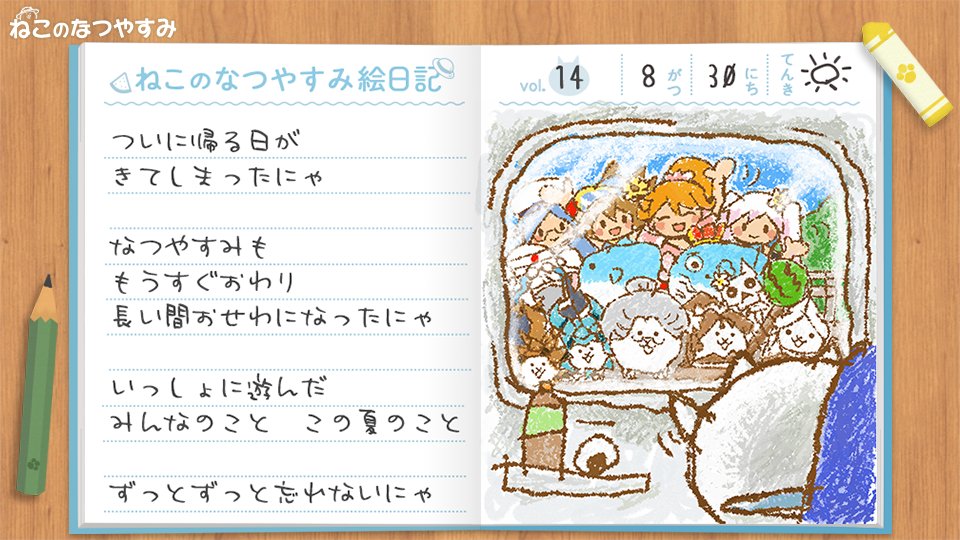 ねこのなつやすみ
ねこのなつやすみ絵日記
vol. 14 8がつ 30にち てんき
ついに帰る日が
きてしまったにゃ
なつやすみも
もうすぐおわり
長い間おせわになったにゃ
いっしょに遊んだ
みんなのこと この夏のこと
ずっとずっと忘れないにゃ